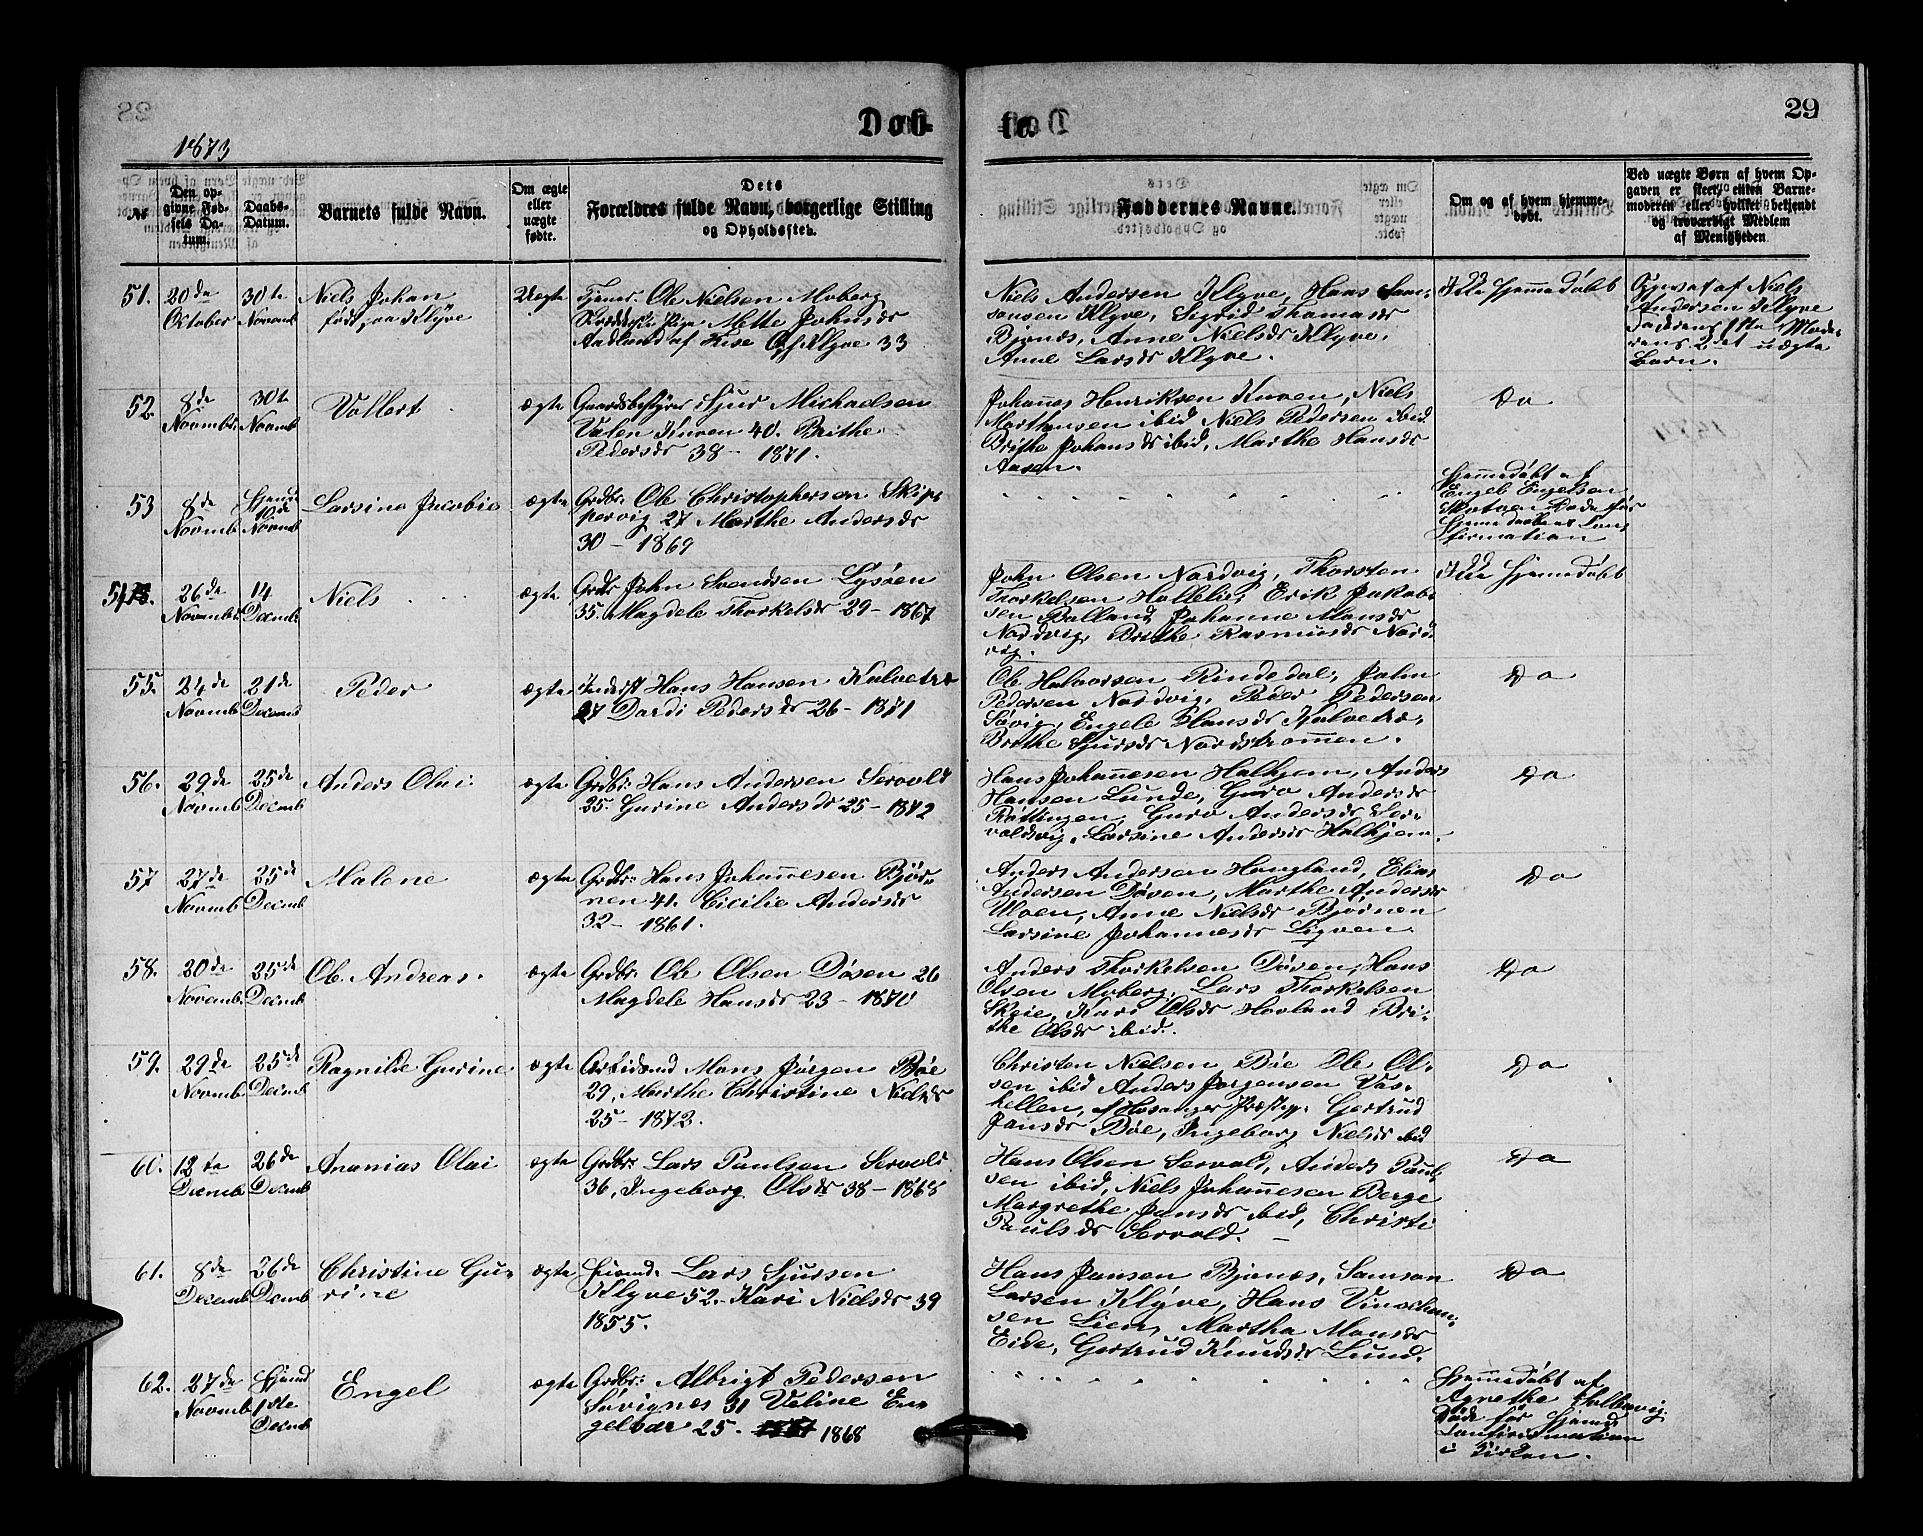 29
Døb-
te.
1873
No
Den op-
givne Fød-
sels Da-
tum.
Daabs-
Datum.
Barnets fulde Navn.
Om ægte
eller
uægte
fødte.
Dets
Forældres fulde Navn, borgerlige Stilling
og Opholdssted.
Faddernes Navne.
Om og af hvem hjemme-
døbt.
Ved uægte Børn af hvem Op-
gaven er skeet, enten Barne-
moderen eller hvilket bekjendt
og troværdigt Medlem
af Menigheden
51.
20de
October
30te
Novemb
Niels Johan
født paa Klyve
Uægte
Tjener. Ole Nielsen Moberg
Pige Mette Johnsdr
Aadland af Fuse Oph Klyve 33
Niels Andersen Klyve, Hans Sam-
sonsen Klyve, Sigrid Thomasdr
Bjønes, Anne Nielsdr Klyve,
Anne Larsdr Klyve.
Ikke hjemmedøbt
Opgivet af Niels
Andersen Klyve
Faderens 1ste Mode-
rens 2det uægte
Barn.
52.
8de
Novmbr.
30te
Novmb
Vallert
ægte
Gaardsbestyrer Sjur Michaelsen
Valen Kuven 40. Brithe
Pedersdr 38 - 1871.
Johannes Henriksen Kuven, Niels
Mathiasen ibid Niels Pedersen ibid
Brithe Johansdr ibid, Marthe Hansdr
Aasen.
Do
53
8de
Novmb
Hjemde
10de
Novmb
Larsine Jacobie
ægte
Grdbr. Ole Christophersen Skip-
pervig 27 Marthe Andersdr
30 - 1869
Hjemmedøbt af
Engel Engelsen
Døde før
Hjemmedaabens Con-
firmation
54.
26de
Novmber
14
Decmb
Niels
ægte
Grdbr John Svendsen Lysøen
35. Magdele Thorkelsdr 29 - 1867
John Olsen Nordvig, Thorsten
Thorkelsen Hollelie, Erik Jakob-
sen Balland, Johanne Monsdr
Nordvig, Brithe Rasmusdr Nord-
vig.
Ikke hjemmedøbt
55.
24de
Novmb
21de
Decemb
Peder
ægte
Inderst Hans Hansen Kalvetræ
27 Dordi Pedersdr 26 - 1871
Ole Halvorsen Rindedal, John
Pedersen Nordvig, Peder Pedersen
Søvig, Engele Hansdr Kalvetræ,
Brithe Sjursdr Nordstrømmen.
Do
56.
29de
Novmb
25de
Decemb
Anders Olai
ægte
Grdbr: Hans Andersen Servold
25. Gurine Andersdr 25 - 1872
Hans Johannesen Halhjem, Anders
Hansen Lunde, Guro Andersdr
Røttingen, Guro Andersdr Ser-
voldsvig, Larsine Andersdr Halhjem.
Do
57
27de
Novmb
25de
Decmb
Malene
ægte
Grdbr: Hans Johannesen Bjør-
nen 41. Cicilie Andersdr
32 - 1861.
Anders Andersen Haugland, Elias
Andersen Døsen, Marthe Andersdr
Moen, Anne Nielsdr Bjørnen
Larsine Johannesdr Ligven.
Do
58.
20de
Novemb.
25de
Decmb
Ole Andreas.
ægte
Grdbr: Ole Olsen Døsen 26
Magdele Hansdr 23 - 1870
Anders Thorkelsen Døsen, Hans
Olsen Moberg, Lars Thorkelsen
Skeie, Kari Olsdr Hovland Bri-
the Olsdr ibid.
Do
59.
29de
Novmb
25de
Decmb
Ragnilde Gurine.
ægte
Arbeidsmd Mons Jørgen Bøe
29, Marthe Christine Nielsdr
25 - 1873.
Christen Nielsen Bøe Ole Ol-
sen ibid Anders Jørgensen Vas-
hellen, af Hosanger Præstegj. Gertrud
Jansdr Bøe, Ingeborg Nielsdr ibid
Do
60.
12te
Decmb
26de
Decmb
Ananias Olai
ægte
Grdbr: Lars Paulsen Servold
36, Ingeborg Olsdr 38 - 1868
Hans Olsen Servold, Anders Paul-
sen ibid, Niels Johannesen Berge
Margrethe Jansdr ibid, Christi
Paulsdr Servold. -
Do
61.
8de
Decemb
26de
Decmb
Christine Gu-
rine
ægte
Huusmd. Lars Sjursen
Klyve 52. Kari Nielsdr 39
1855.
Hans Jansen Bjønes, Samson
Larsen Klyve, Hans
sen Lien, Martha Monsdr
Eide, Gertrud Knudsdr Lund.
Do
62.
27de
Novmb
Hjemd
1ste
Decmb
Engel
ægte
Grdbr: Albrigt Pedersen
Søvignes 31 Valine En-
gelsdr 25. 1868
Hjemmedøbt af
Agnethe Solbavig.
Døde før Hjemd.
Confirmation
i Kirken.